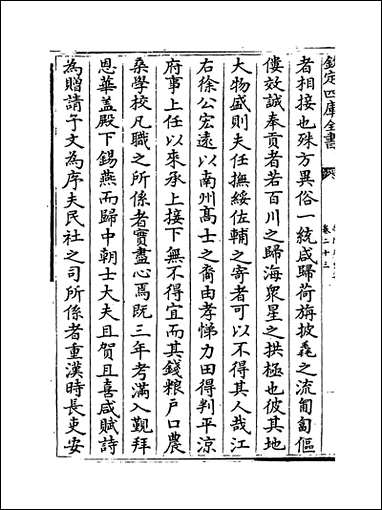 欽定四庫全書
卷二十三
者相接也殊方異俗一統咸歸荷旃披毳之流匍匐傴
僂效誠奉貢者若百川之歸海衆星之拱極也彼其地
大物盛則夫任撫綏佐輔之寄者可以不得其人哉江
右徐公宏遠以南州髙士之裔由孝悌力田得判平涼
府事上任以來承上接下無不得宜而其錢粮户口農
桑學校凡職之所係者實盡心焉既三年考滿入覲拜
恩華盖殿下錫燕而歸中朝士大夫且賀且喜咸賦詩
為贈請予文為序夫民社之司所係者重漢時長吏安